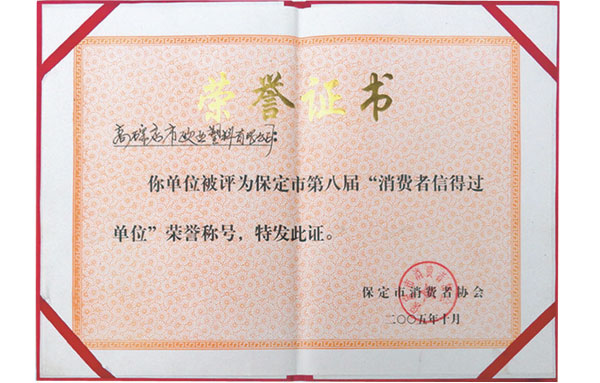 荣誉证书
高碑店市欧亚塑料有限公司:
你单位被评为保定市第八届“消费者信得过
单位”荣誉称号，特发此证。
保定市消费者协会
二〇〇五年十月